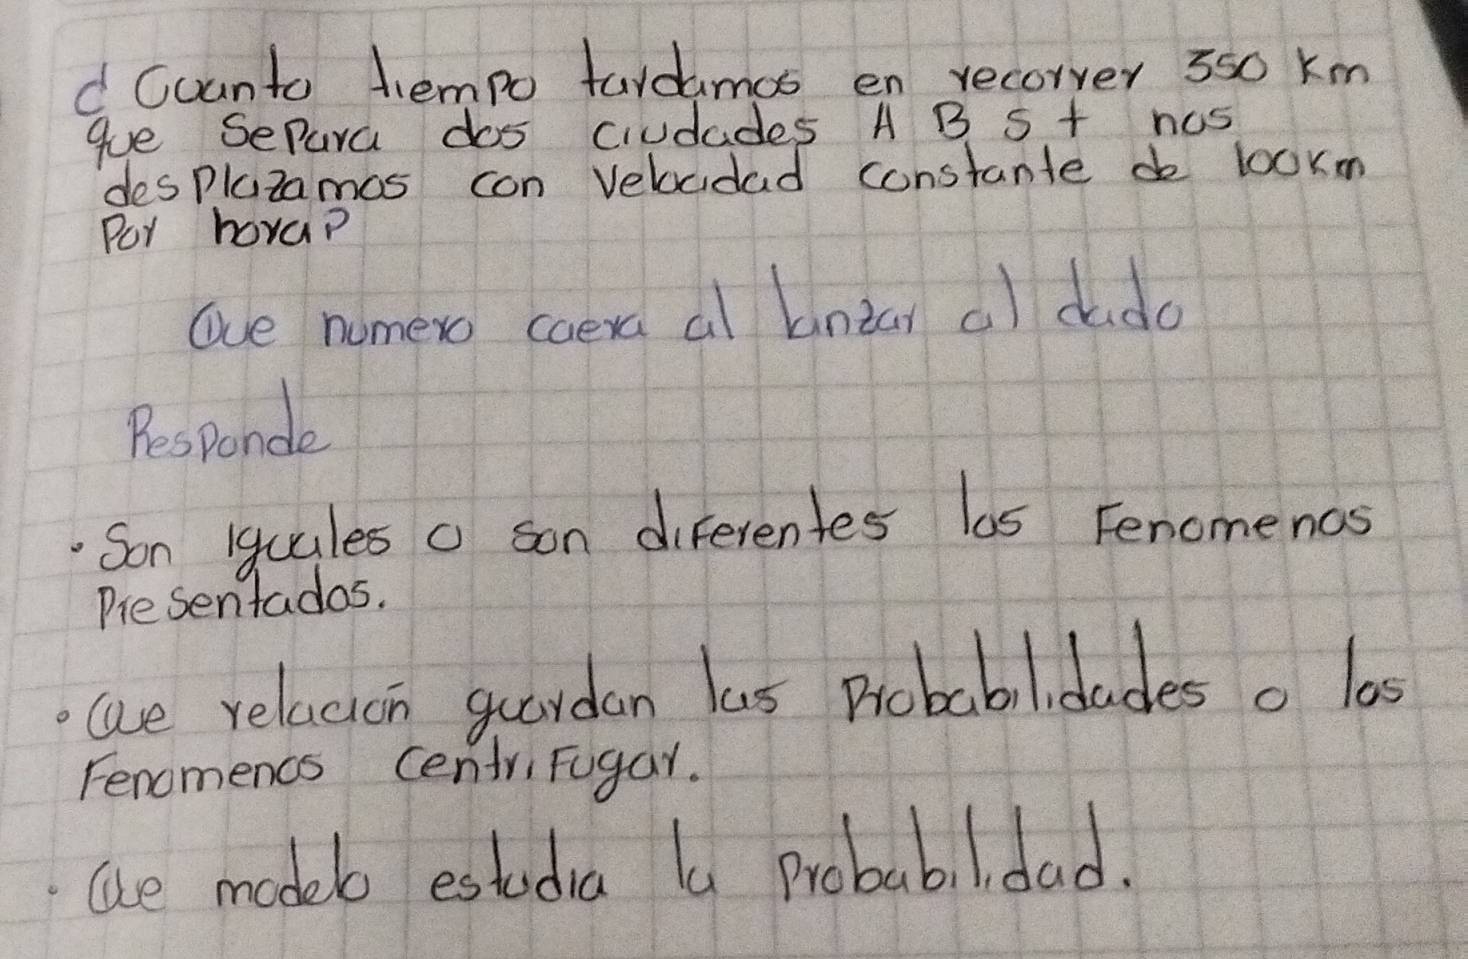 ¿Cuanto tiempo tardamos en recorrer 350 Km
que separa dos ciudades A B s+ nos
desplazamos con velocidad constante de 100km
Por hora?
Que numero caera al lanzar al dado
Responde
• Son iguales o son diferentes los Fenomenos
Presentados.
• Que relación guardan las probabilidades o los
Fenomenos CentriFugar.
• Que modelo estudia la probabilidad.